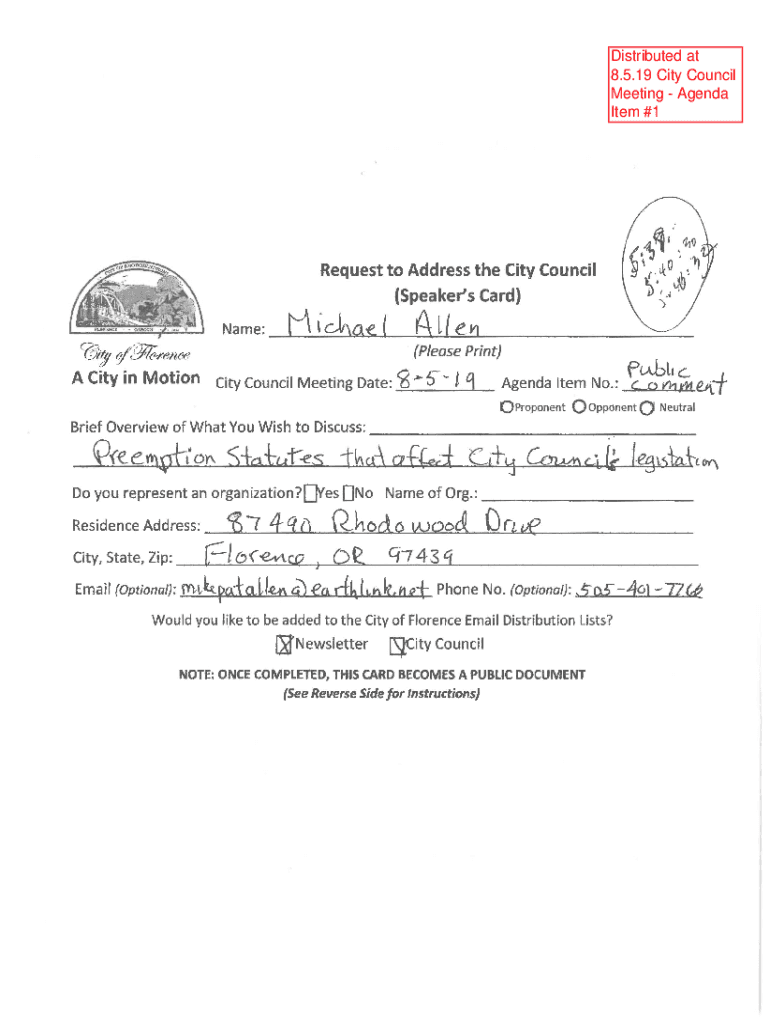 Distributed at
8.5.19 City Council
Meeting - Agenda
Item #1
Request to Address the City Council
(Speaker's Card)
Name: Michael Allen
(Please Print)
City of Florence
A City in Motion
City Council Meeting Date: 8-5-19 Agenda Item No.: Public comment
Proponent Opponent Neutral
Brief Overview of What You Wish to Discuss:
Preemption Statutes that affect City Council's legistation
Do you represent an organization? Yes No Name of Org.:
Residence Address: 87490 Rhodowood Drive
City, State, Zip: Florence, OR 97439
Email (Optional): mikepatallen@earthlink.net Phone No. (Optional): 505-401-7766
Would you like to be added to the City of Florence Email Distribution Lists?
Newsletter City Council
NOTE: ONCE COMPLETED, THIS CARD BECOMES A PUBLIC DOCUMENT
(See Reverse Side for Instructions)